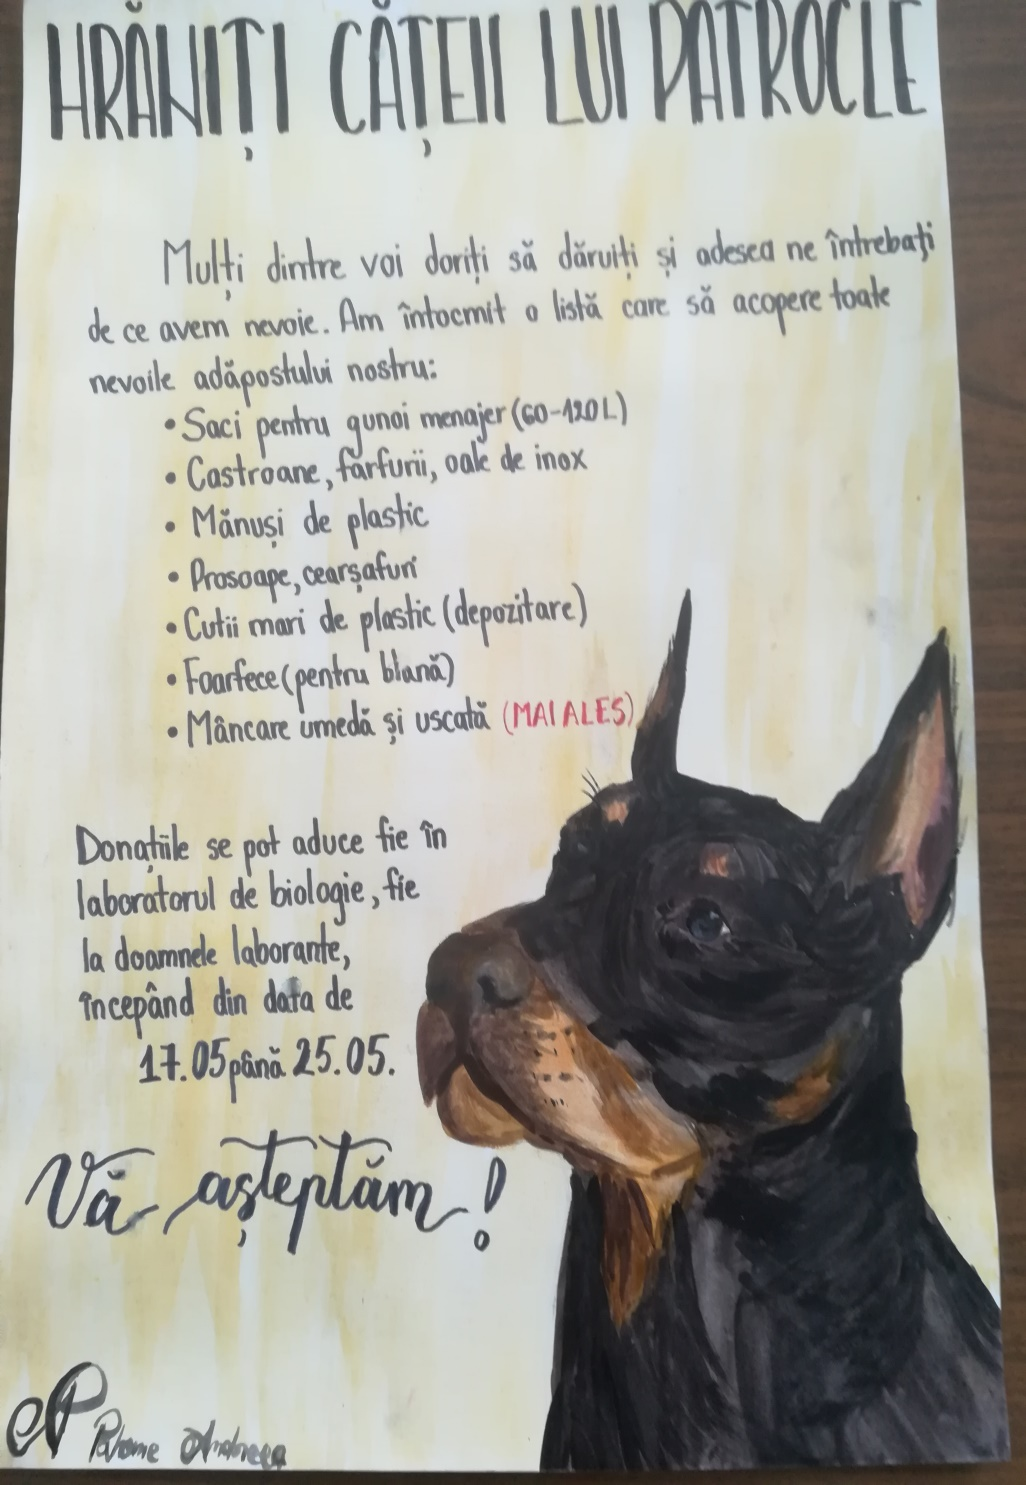 HRĂNIȚI CĂȚEII LUI PATROCLE
Mulți dintre voi doriți să dăruiți și adesea ne întrebați
de ce avem nevoie. Am întocmit o listă care să acopere toate
nevoile adăpostului nostru:
• Saci pentru gunoi menajer (60-120L)
• Castroane, farfurii, oale de inox
• Mănuși de plastic
• Prosoape, cearșafuri
• Cutii mari de plastic (depozitare)
• Foarfece (pentru blană)
• Mâncare umedă și uscată (MAI ALES)
Donațiile se pot aduce fie în
laboratorul de biologie, fie
la doamnele laborante,
începând din data de
17.05 până 25.05.
Vă așteptăm!
Andreea